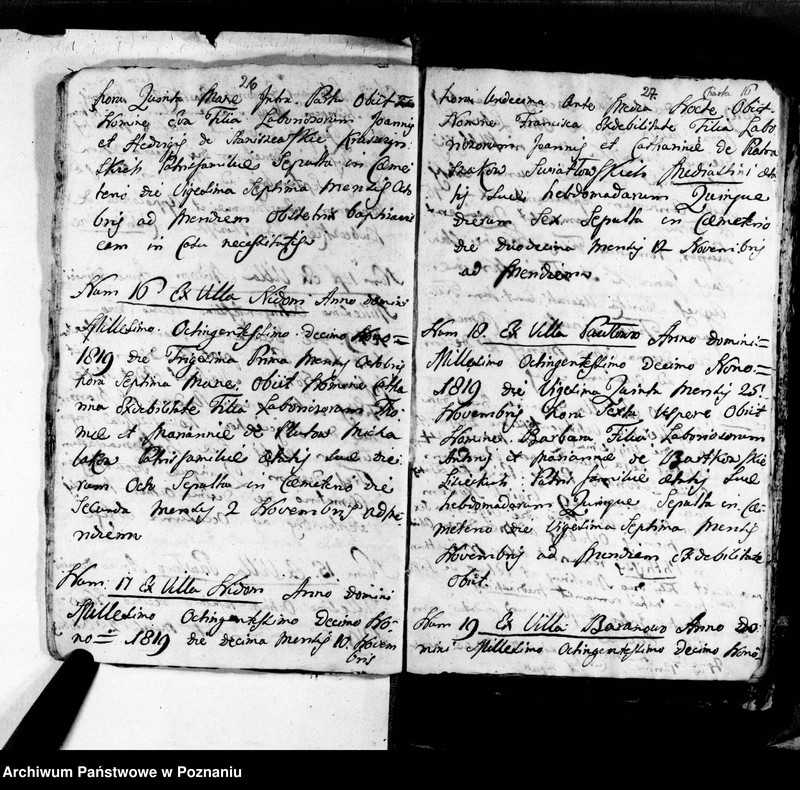 26
hora Quinta Mane Intra Partu Obiit
Nomine Eva Filia Laboriosorum Joannis
et Hedvigis de
Patrisfamiliae Sepulta in Cæme
terio die Vigesima Septima Mensis Octo
bris ad Meridiem Obstetrix baptisavit
eam in Casu necessitatis
Num 16 Ex Villa Nidom Anno Domini
Millesimo Octingentesimo decimo Nono =
1819 die Trigesima Prima Mensis Octobris
hora Septima Mane, Obiit Nomine Catha
rina Exdebilitate Filia Laboriosorum Tho
mæ et Mariannæ de Micha
laków Patrisfamiliæ ætatis suæ die
rum Octo Sepulta in Cæmeterio die
Secunda Mensis 2 Novembris ad Me
ridiem
Num: 17 Ex Villa Nidom Anno Domini
Millesimo Octingentesimo Decimo No-
no = 1819 die decima Mensis 10. Novem
bris
27. Karta 16
hora Undecima Ante Media Nocte Obiit
Nomine Francisca Exdebilitate Filia Labo
riosorum Joannis et Catharinæ de Ratra
szaków Swiatłowskich Mediastini æta
tis suæ hebdomadarum Quinque
dierum Sex Sepulta in Cæmeterio
die duodecima Mensis 12 Novembris
ad Meridiem
Num 18. Ex Villa Pawłowo Anno Domini =
Millesimo Octingentesimo Decimo Nono =
1819 die Vigesima Quinta Mensis 25
Novembris hora Sexta Vespere Obiit
Nomine Barbara Filia Laboriosorum
Antonij et Mariannæ de Bartkowskie
Patris familiæ ætatis suæ
hebdomadarum Quinque Sepulta in Cæ
meterio die Vigesima Septima Mensis
Novembris ad Meridiem Exdebilitate
Obiit.
Num 19 Ex Villa Baranowo Anno Do
mini Millesimo Octingentesimo Decimo Nono
Archiwum Państwowe w Poznaniu